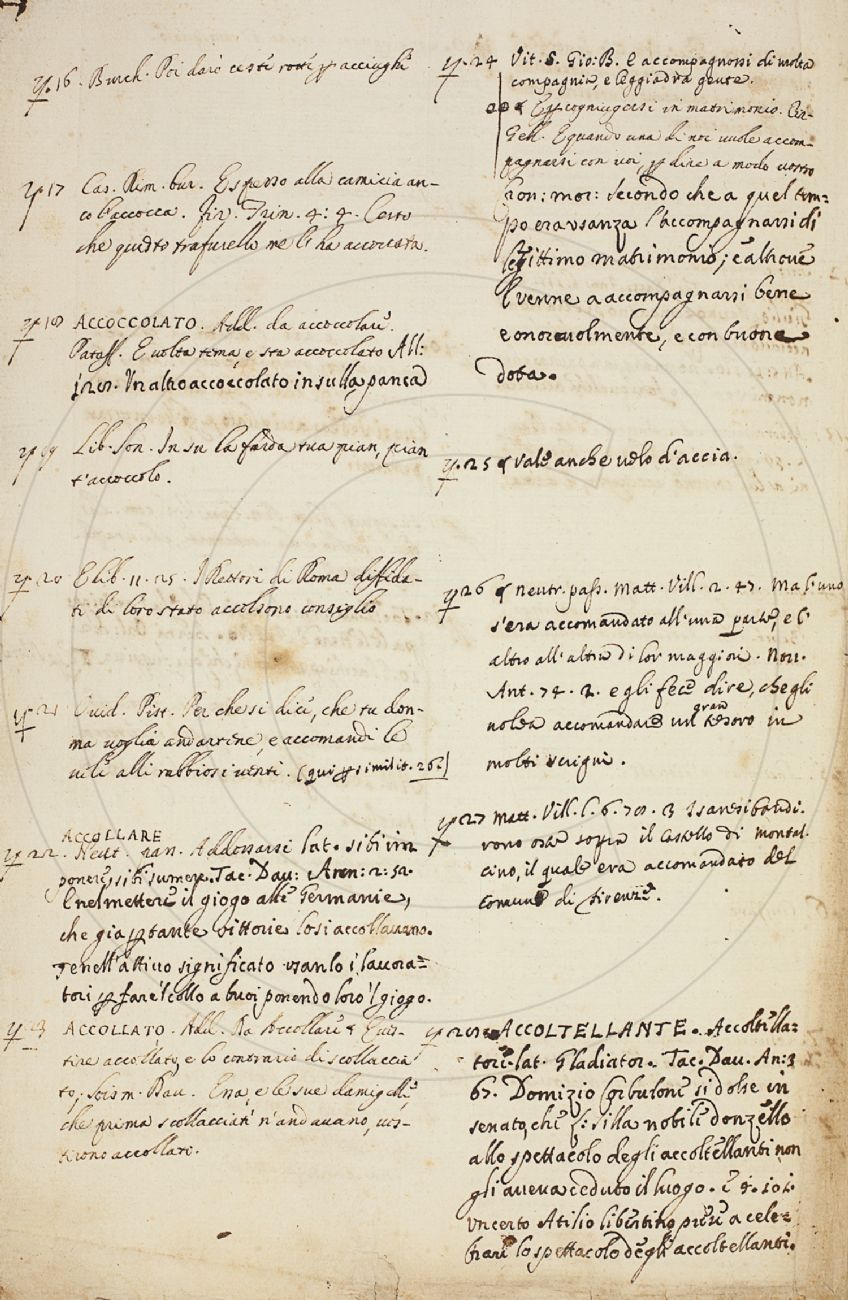 16. Burch. Poi darò cesti rotti p acciughe
17 Cas. Rim. bur. Espesso alla camicia an-
co l'accocca. Fir. Trin. 4: 4. Certo
che questo trafurello me l'ha accoccata.
18 ACCOCCOLATO. Add. da accoccolare.
Pataff. E volta tema, e sta accoccolato All:
Un altro accoccolato in sulla panca
19 Lib. Son. In su la farda tua pian, pian
t'accoccolo.
20 E lib. 11. 25. I Rettori di Roma diffida-
ti di loro stato accolsono consiglio
21 Ovid. Pist. Per che si dice, che tu don-
ma voglia andartene, e accomandi le
vele alli rabbiosi venti. (qui p similit. 26.)
ACCOLLARE
22. Neut. Addossarsi lat. sibi im
ponere, sibi sumere. Tac. Dav: Ann: 2: 52.
E nel mettere il giogo alle Germanie,
che già p tante vittorie losi accollavano.
Tenell'attivo significato usanlo i lavora=
tori p fare'l collo a buoi ponendo loro 'l giogo.
23 ACCOLLATO. Add. Da Accollare Ves-
tire accollato, e lo contrario di scollaccia
to, Ena, e le sue damigelle,
che prima scollacciate n'andavano, ves-
tirono accollato.
24 Vit. S. Gio: B. E accompagnossi di molta
compagnia, e leggiadra gente.
E p cogniugersi in matrimonio.
Gell. E quando una di noi vuole accom-
pagnarsi con voi, p dire a modo vostro
Bor: mor: Secondo che a quel tem=
po era usanza l'accompagnarsi di
legittimo matrimonio; e altrove
E venne a accompagnarsi bene
e onorevolmente, e con buona
dota.
25 Vale anche velo d'accia.
26 neutr. pass. Matt. Vill. 2. 47. Ma l'uno
s'era accomandato all'una parte, e l'
altro all'altra di lor maggiori. Nov.
Ant. 74. 2. egli fece dire, chegli
volea accomandare un gran tesoro in
molti scrigni.
27 Matt. Vill. l. 6. 3 I sanesi bandi.
rono oste sopra il castello di Montal
cino, il quale era accomandato del
Comune di Firenze.
ACCOLTELLANTE. Accoltella=
tore. lat. Gladiator. Tac. Dav. An: 3
67. Domizio Corbulone si dolse in
senato, che L: Silla nobile donzello
allo spettacolo degli accoltellanti non
gli aveva ceduto il luogo. E 4. 101.
Un certo Atilio libertino prese a cele=
brare lo spettacolo degli accoltellanti.